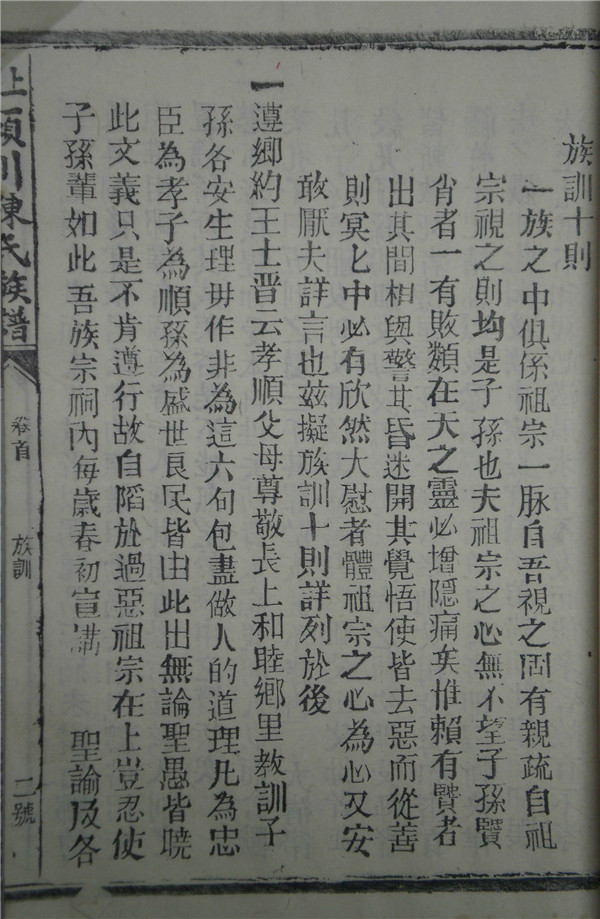 族訓十則
一族之中俱係祖宗一脉自吾視之固有親疏自祖
宗視之則均是子孫也夫祖宗之心無不望子孫賢
肖者一有敗類在天之靈必增隱痛矣惟賴有賢者
出其間相與警其昏迷開其覺悟使皆去惡而從善
則冥匕中必有欣然大慰者體祖宗之心為心又安
敢厭夫詳言也玆擬族訓十則詳列於後
一遵鄉約王士晋云孝順父母尊敬長上和睦鄉里教訓子
孫各安生理毋作非為這六句包盡做人的道理凡為忠
臣為孝子為順孫為盛世良民皆由此出無論聖愚皆曉
此文義只是不肯遵行故自陷於過惡祖宗在上豈忍使
子孫輩如此吾族宗祠內每歲春初宣講 聖論及各
上穎川陳氏族譜
卷首
族訓
二號